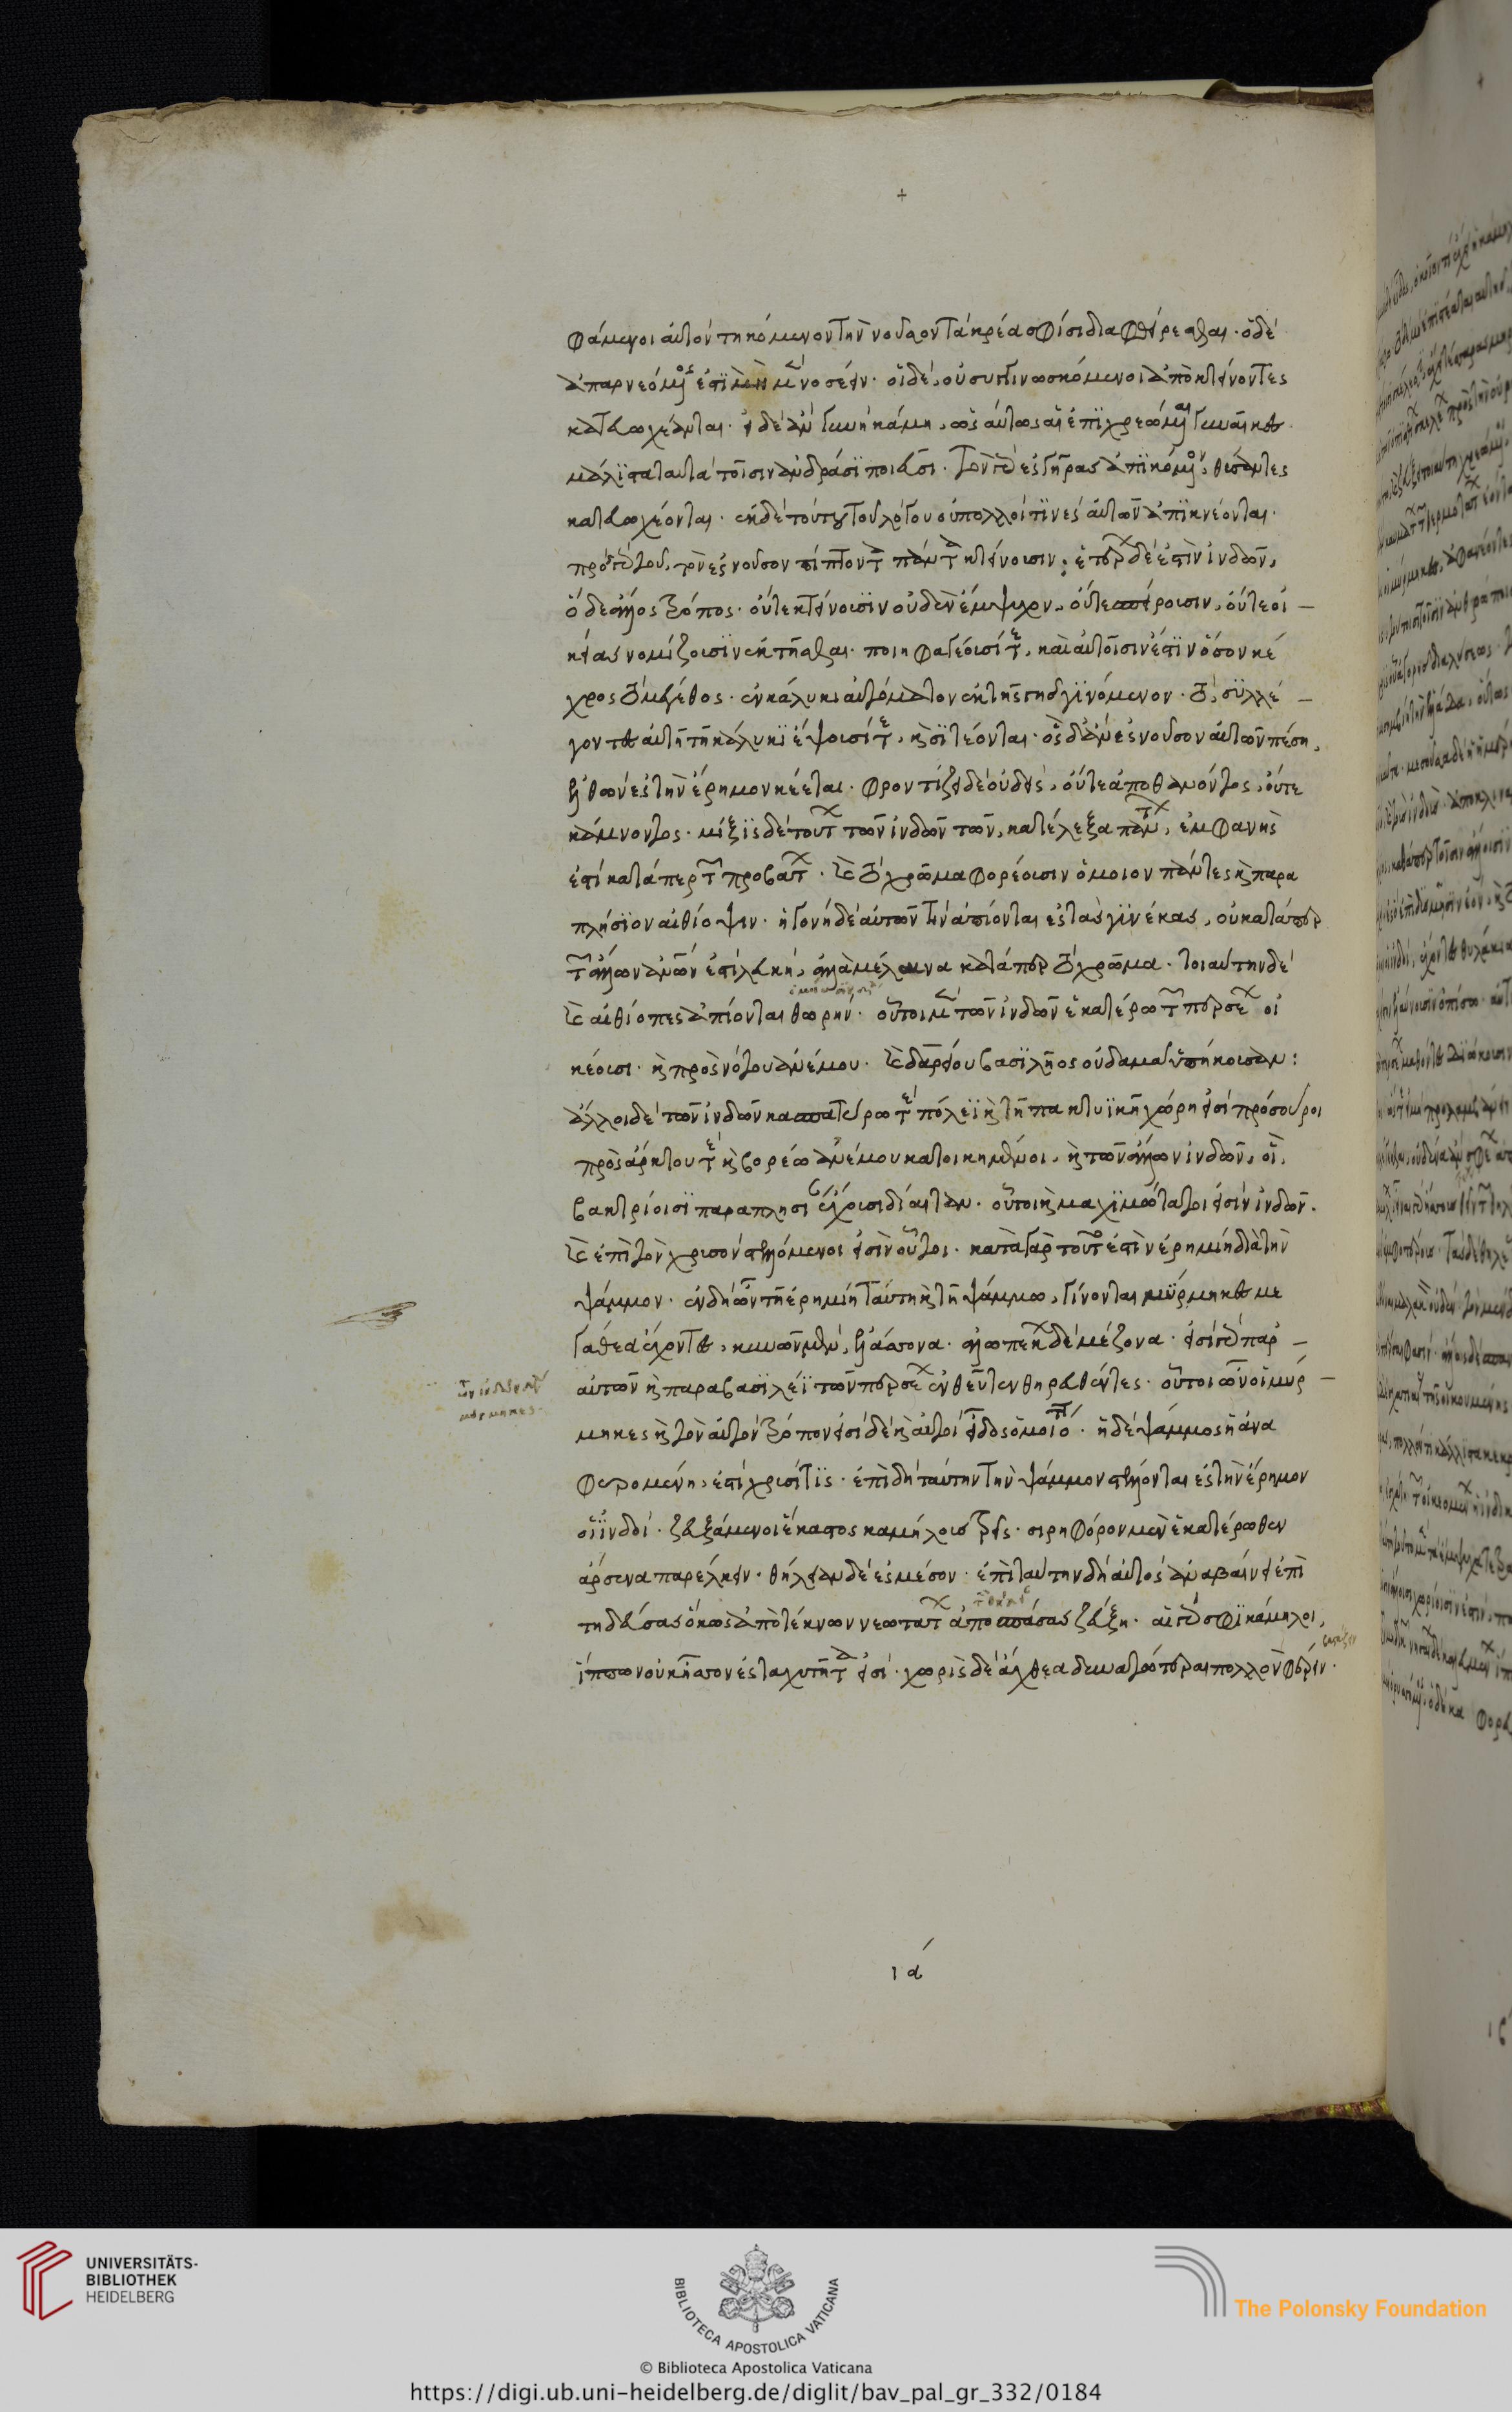 φάμενοι αὐτόν τηκόμενον τὴν νοῦσον τὰ κρέα σφίσι διαφθείρεσθαι· ὁ δέ
ἀπαρνεόμενος ἐστὶ μὲν νοσέειν· οἱ δέ, οὐ συγγινωσκόμενοι ἀποκτείνοντες
κατευωχέανται· εἰ δὲ ἂν γυνὴ κάμη, ὡς αὔτως αἱ ἐπϊχρεώμεναι γυναῖκες
μάλϊστα ταυτὰ τοῖσιν ἀνδράσϊ ποιεῦσι. τὸν δὲ ἐς γῆρας ἀπϊκόμενον, θύσαντες
κατευωχέονται. ἐς δὲ τούτου τοῦ λόγου οὐ πολλοί τϊνές αὐτῶν ἀπϊκνέονται.
πρὸ δὲ τοῦ, τὸν ἐς νοῦσον πίπτοντα πάντα κτείνουσιν: ἑτέρων δέ ἐστὶν ἰνδῶν,
ὅδε ἄλλος τρόπος. οὔτε κτείνουσϊν οὐδὲν ἔμψυχον, οὔτε σπείρουσιν, οὔτε οἰ –
κίας νομίζουσϊν ἐκτῆσθαι. ποιηφαγέουσί τε, καὶ αὐτοῖσιν ἐστϊν ὅσον κέ
γχρος τὸ μέγεθος. ἐν κάλυκι αὐτόματον ἐκ τῆς γῆς γϊνόμενον. τὸ συλλέ –
γοντες αὐτῇ τῇ κάλυκϊ ἕψουσί τε, καὶ σϊτέονται. ὃς δ' ἂν ἐς νοῦσον αὐτῶν πέσῃ,
ἐλθὼν ἐς τὴν ἔρημον κέεται. φροντίζει δὲ οὐδείς, οὔτε ἀποθανόντος, οὔτε
κάμνοντος. μίξϊς δὲ τούτων τῶν ἰνδῶν τῶν κατέλεξα πάντων, ἐμφανὴς
ἐστί κατάπερ τῶν προβάτων. καὶ τὸ χρῶμα φορέουσιν ὅμοιον πάντες καὶ παρα
πλήσϊον αἰθίοψιν. ἡ γονὴ δὲ αὐτῶν τὴν ἀπίονται ἐς τὰς γϊνέκας, οὐ κατάπερ
τῶν ἄλλων ἀνθρώπων ἐστὶ λευκή, ἀλλὰ μέλαινα κατάπερ τὸ χρῶμα. τοιαύτην δὲ
καὶ αἰθίοπες ἀπίονται θορήν. οὗτοι μὲν τῶν ἰνδῶν ἑκατέρω τῶν περσέων οἰ
κέουσι. καὶ πρὸς νότου ἀνέμου. καὶ δαρείου βασϊλῆος οὐδαμᾶ ὑπήκουσαν:
ἄλλοι δὲ τῶν ἰνδῶν κασπατύρω τε πόλεϊ καὶ τῇ πακτυϊκῇ χώρῃ εἰσὶ πρόσουροι
πρὸς ἄρκτου τε καὶ βορέω ἀνέμου κατοικημένοι, καὶ τῶν ἄλλων ἰνδῶν, οἳ,
βακτρίοισϊ παραπλησίην ἔχουσι δίαιταν. οὗτοι καὶ μαχϊμώτατοι εἰσὶν ἰνδῶν.
καὶ ἐπὶ τὸν χρυσόν στελλόμενοι εἰσὶν οὗτοι. κατὰ γὰρ τοῦτο ἐστὶν ἐρημίη διὰ τὴν
ψάμμον. ἐν δὴ ὦν τῇ ἐρημίῃ ταύτῃ καὶ τῇ ψάμμω, γίνονται μύρμηκες με
γάθεα ἔχοντες, κυνῶν μὲν, ἐλάσσονα. ἀλωπέκων δὲ μέζονα. εἰσὶ δὲ παρ' –
αὐτῶν καὶ παρὰ βασϊλέϊ τῶν περσέων ἐνθεῦτεν θηρευθέντες. οὗτοι ὦν οἱ μύρ –
μηκες καὶ τὸν αὐτὸν τρόπον εἰσὶ δὲ καὶ αὐτοὶ εἶδος ὁμοιότατοι. ἡ δὲ ψάμμος ἡ ἀνα
φερομένη, ἐστὶ χρυσίτϊς. ἐπὶ δὴ ταύτην τὴν ψάμμον στέλλονται ἐς τὴν ἔρημον
οἱ ϊνδοί. ζευξάμενοι ἕκαστος καμήλους τρεῖς. σιρηφόρον μὲν ἑκατέρωθεν
ἄρσενα παρέλκειν. θήλειαν δὲ ἐς μέσον. ἐπὶ ταύτην δὴ αὐτὸς ἀναβαίνει ἐπὶ
τηδεύσας ὅκως ἀπὸ τέκνων νεωτάτων ἀποσπάσας ζεύξῃ. αἱ γὰρ σφϊ κάμηλοι,
ἵππων οὐκ ἥσσονες ταχυτῆτα εἰσί. χωρὶς δὲ ἄχθεα δυνατώτεραι πολλὸν φέρειν.
ιά
UNIVERSITÄTS-
BIBLIOTHEK
HEIDELBERG
BIBLIOTECA APOSTOLICA VATICANA
The Polonsky Foundation
© Biblioteca Apostolica Vaticana
https://digi.ub.uni-heidelberg.de/diglit/bav_pal_gr_332/0184